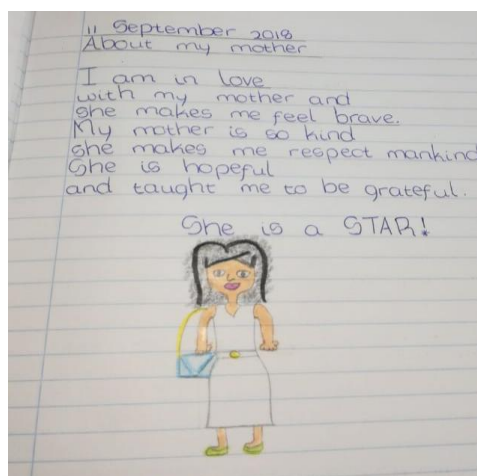 11 September 2018
About my mother
I am in love
with my mother and
she makes me feel brave.
My mother is so kind
she makes me respect mankind
She is hopeful
and taught me to be grateful.
She is a STAR!